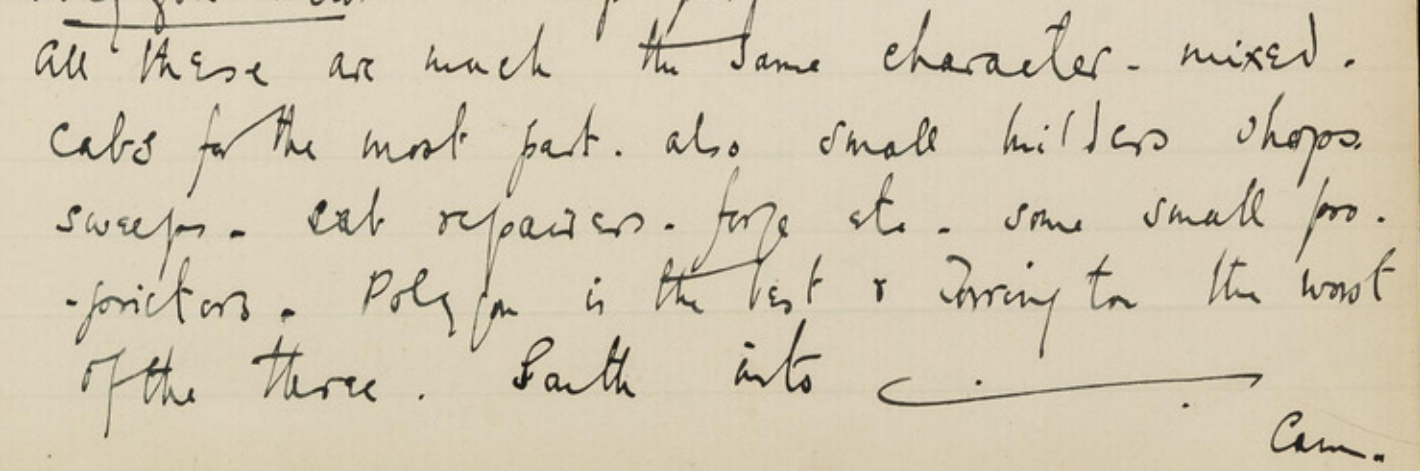 All these are much the same character - mixed.
Cabs for the most part. also small builders shops.
sweeps - cab repairers - forge etc - some small pro-
-prietors. Polygon is the best & Torrington the worst
of the three. South into
Cam.